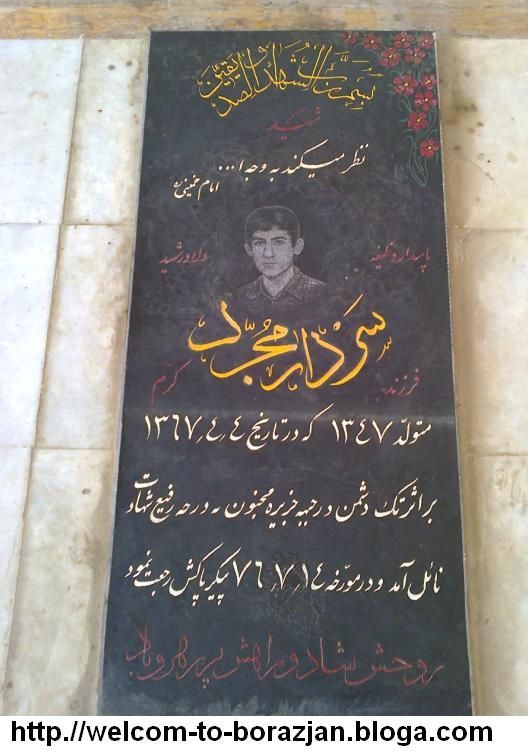 بسم رب الشهداء و الصدیقین
شهید
نظر میکند به وجه ا...
امام خمینی ره
پاسدار وظیفه دلاور شهید
سردار مجرب
فرزند کرم
متولد ۱۳۴۷ که در تاریخ ۴؍۴؍۱۳۶۷
بر اثر تک دشمن در جبهه جزیره مجنون به درجه رفیع شهادت
نائل آمد و در مورخه ۱۴؍۷؍۷۶ پیکر پاکش رجعت نمود
روحش شاد و راهش پر رهرو باد
http://welcom-to-borazjan.bloga.com